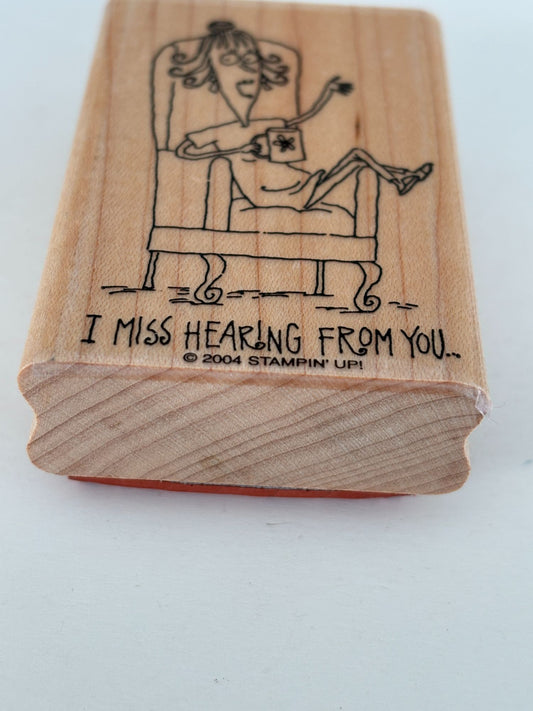 I MISS HEARING FROM YOU...
© 2004 STAMPIN' UP!